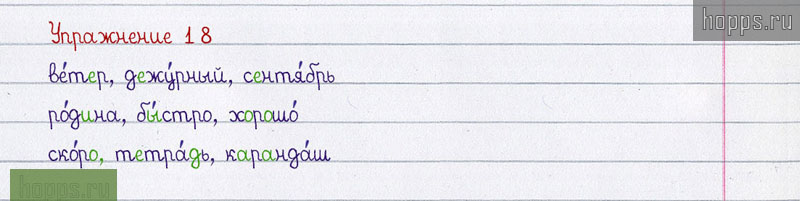 hopps.ru
Упражнение 18
ве́тер, дежу́рный, сентя́брь
ро́дина, бы́стро, хорошо́
ско́ро, тетра́дь, каранда́ш
hopps.ru